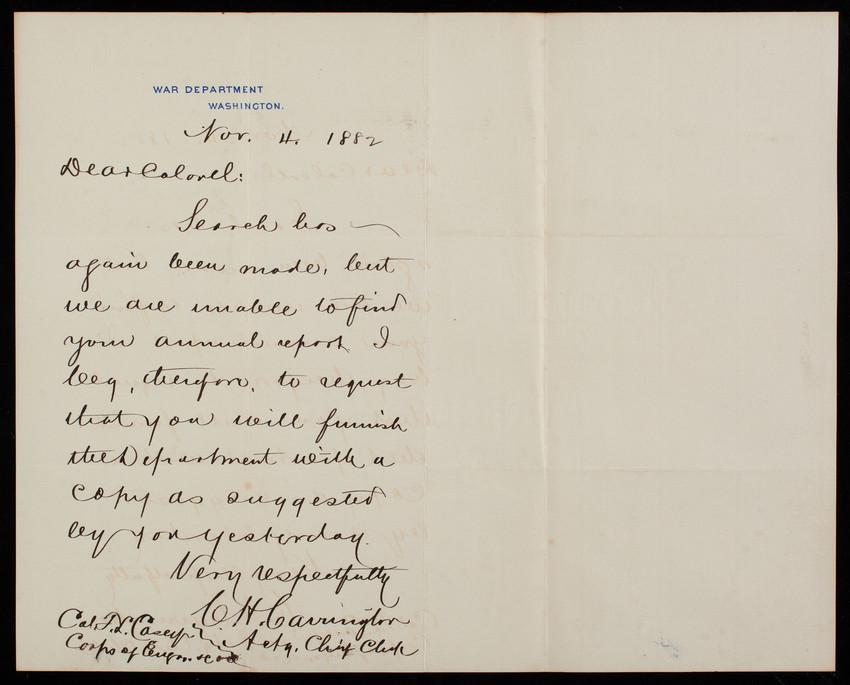 WAR DEPARTMENT
WASHINGTON.
Nov. 4. 1882
Dear Colonel:
Search has
again been made, but
we are unable to find
your annual report. I
beg, therefore, to request
that you will furnish
the Department with a
copy as suggested
by you yesterday.
Very respectfully
C. H. Carrington
Actg. Chief Clerk
Col. T. L. Casey
Corps of Engrs.